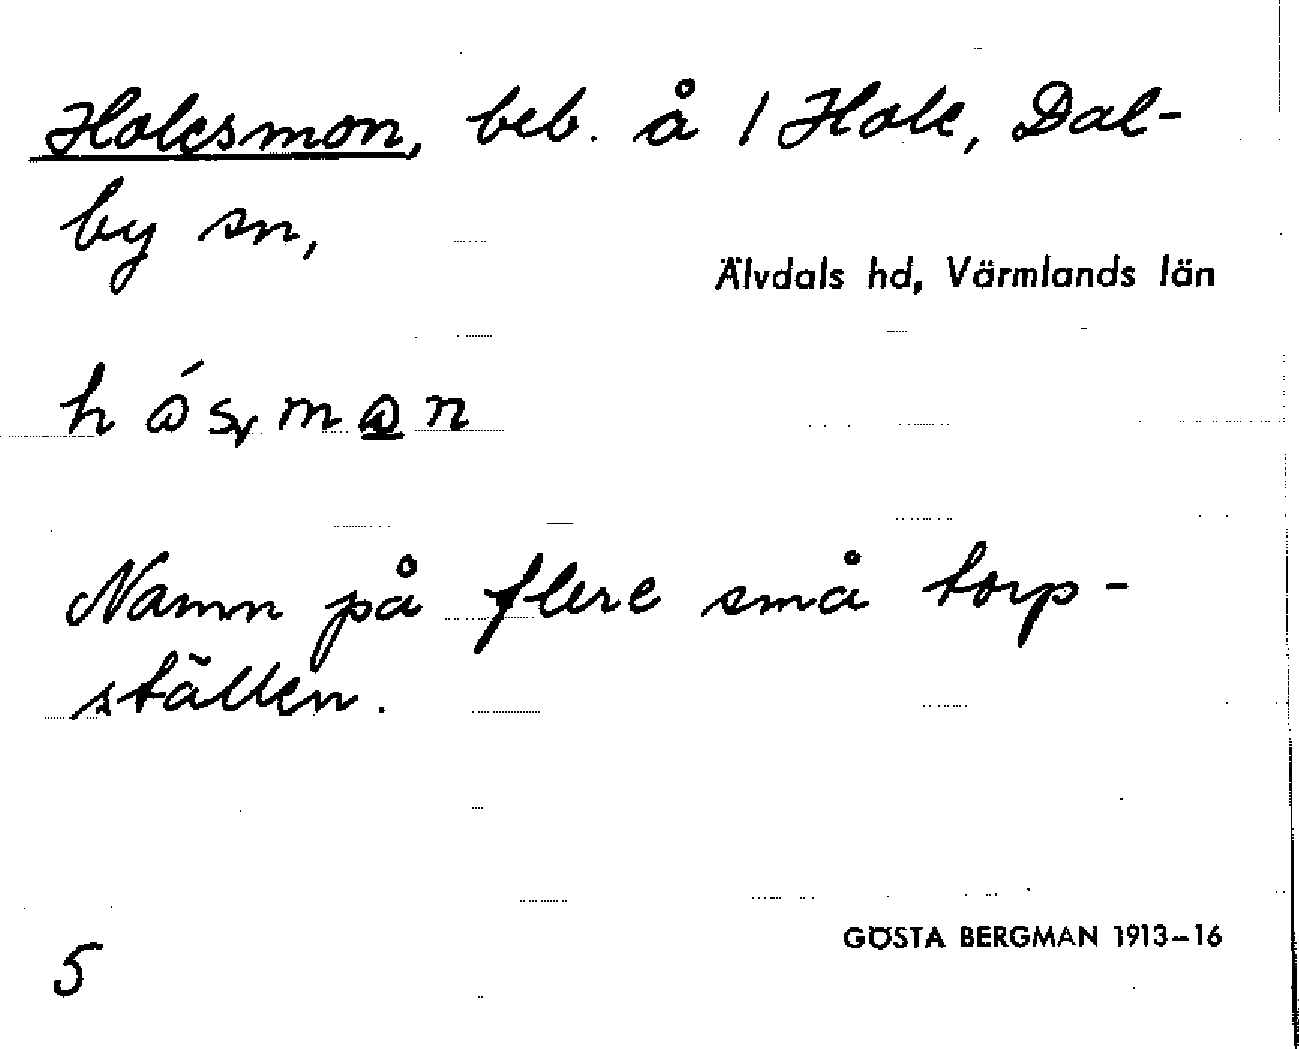 Holesmon, beb. å 1 Hole, Dal-
by sn,
Älvdals hd, Värmlands län
Namn på flere små torp-
ställen.
GÖSTA BERGMAN 1913–16
5